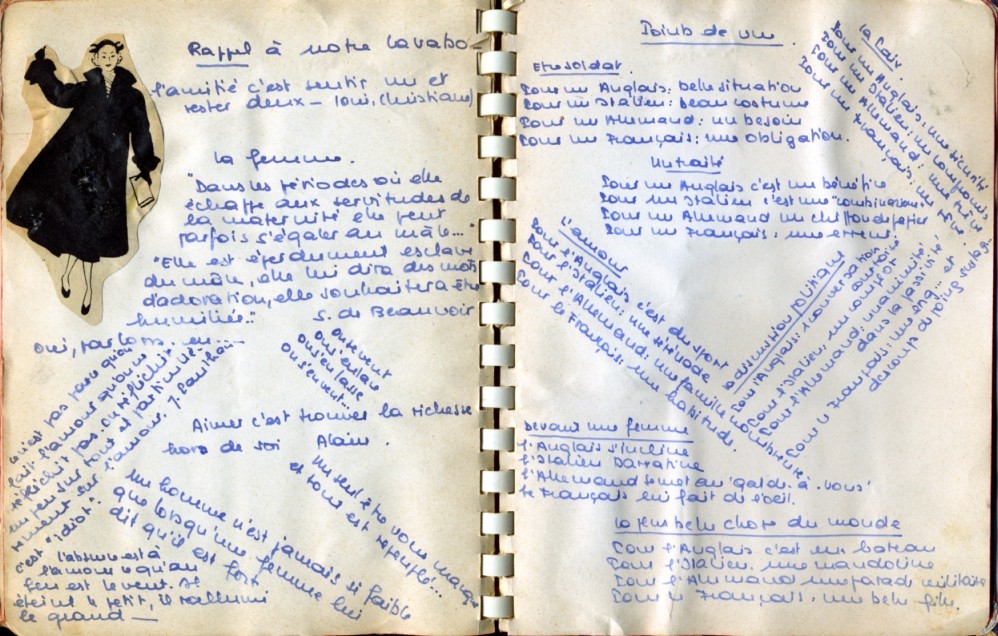 Rappel à notre lavabo
l'amitié c'est sentir un et
rester deux — (oui, Christian)
la femme.
"Dans les périodes où elle
échappe aux servitudes de
la maternité elle peut
parfois s'égaler au mâle..."
"Elle est éperdument esclave
du mâle, elle lui dira des mots
d'adoration, elle souhaitera être
humiliée."
S. de Beauvoir
oui, parlons. en...
On s'enlace
On s'en lasse
Ce n'est pas parce qu'on
fait l'amour qu'on
réfléchit pas. on réfléchit
sur tout et particulière-
ment sur l'amour.
c'est "idiot".
Aimer c'est trouver la richesse
hors de soi Alain.
Un seul être vous manque
et tout est repeuplé...
Un homme n'est jamais si faible
que lorsqu'une femme lui
dit qu'il est fort
l'absence est à
l'amour ce qu'au
feu est le vent. Il
éteint le petit, il rallume
le grand —
Points de vue.
Etre soldat.
Pour un Anglais: belle situation
Pour un Italien: beau costume
Pour un Allemand: un besoin
Pour un Français: une obligation.
la Paix.
Pour un Anglais: une sécurité
Pour un Allemand: une trêve
Pour un Français: un rêve.
Un traité
Pour un Anglais c'est un bénéfice
Pour un Italien c'est une "combinazione"
Pour un Allemand un chiffon de papier
Pour un Français: une erreur!
l'amour
Pour l'Anglais c'est du sport
Pour l'Italien: une sérénade
Pour l'Allemand: une famille nombreuse
Pour le Français: une habitude.
la discussion politique
Pour l'Anglais: 1 conversation
Pour l'Italien: un complot
Pour l'Allemand: unanimité
dans la passivité
Pour 1 Français: une eng... et
des coups de poing sur la...
Devant une femme
l'Anglais s'incline
l'Italien baratine
l'Allemand se met au "garde. à. vous"
le Français lui fait de l'oeil.
la plus belle chose du monde
Pour l'Anglais c'est un bateau
Pour l'Italien. une mandoline
Pour l'Allemand une parade militaire
Pour le Français: une belle fille.